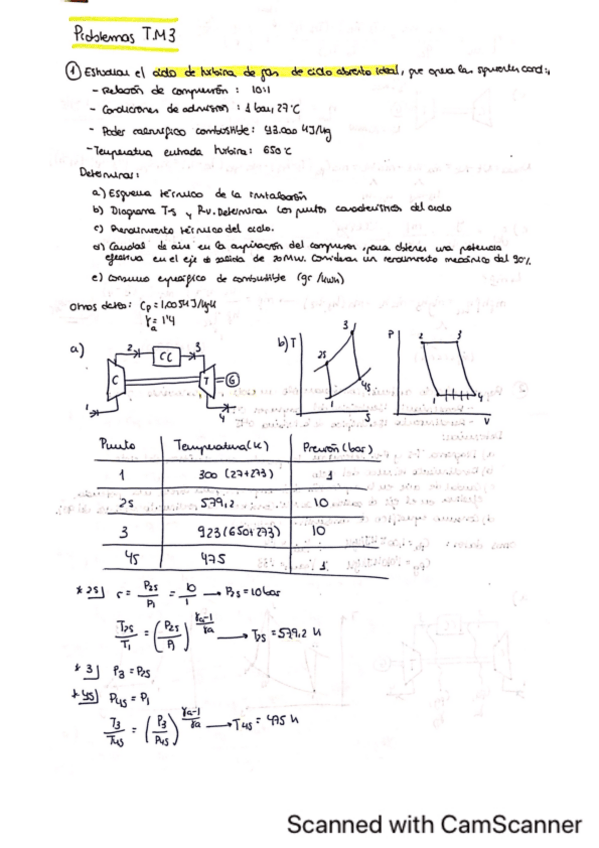 Problemas TM3
① Estudiar el ciclo de turbina de gas de ciclo abierto ideal, que opera las siguientes cond.:
- Relación de compresión : 10:1
- Condiciones de admisión : 1 bar, 27°C
- Poder calorífico combustible: 43.000 kJ/kg
- Temperatura entrada turbina: 650°C
Determinar:
a) Esquema térmico de la instalación
b) Diagrama T-S y P-v. Determinar los puntos característicos del ciclo
c) Rendimiento térmico del ciclo.
d) Caudal de aire en la aspiración del compresor, para obtener una potencia
efectiva en el eje de salida de 20MW. Considerar un rendimiento mecánico del 90%.
e) Consumo específico de combustible (gr/kWh)
Otros datos: Cp = 1,005 kJ/kgK
γa = 1'4
a) 1 2 3 4 C CC T G
b) T 1 2s 3 4s S
P 1 2 3 4 V
Punto Temperatura (K) Presión (bar)
1 300 (27+273) 1
2s 579,2 10
3 923 (650+273) 10
4s 475 1
* 2s] r = P2s/P1 = 10/1 → P2s = 10 bar
T2s/T1 = (P2s/P1)^(γa-1/γa) → T2s = 579,2 K
* 3] P3 = P2s
* 4s] P4s = P1
T3/T4s = (P3/P4s)^(γa-1/γa) → T4s = 475 K
Scanned with CamScanner